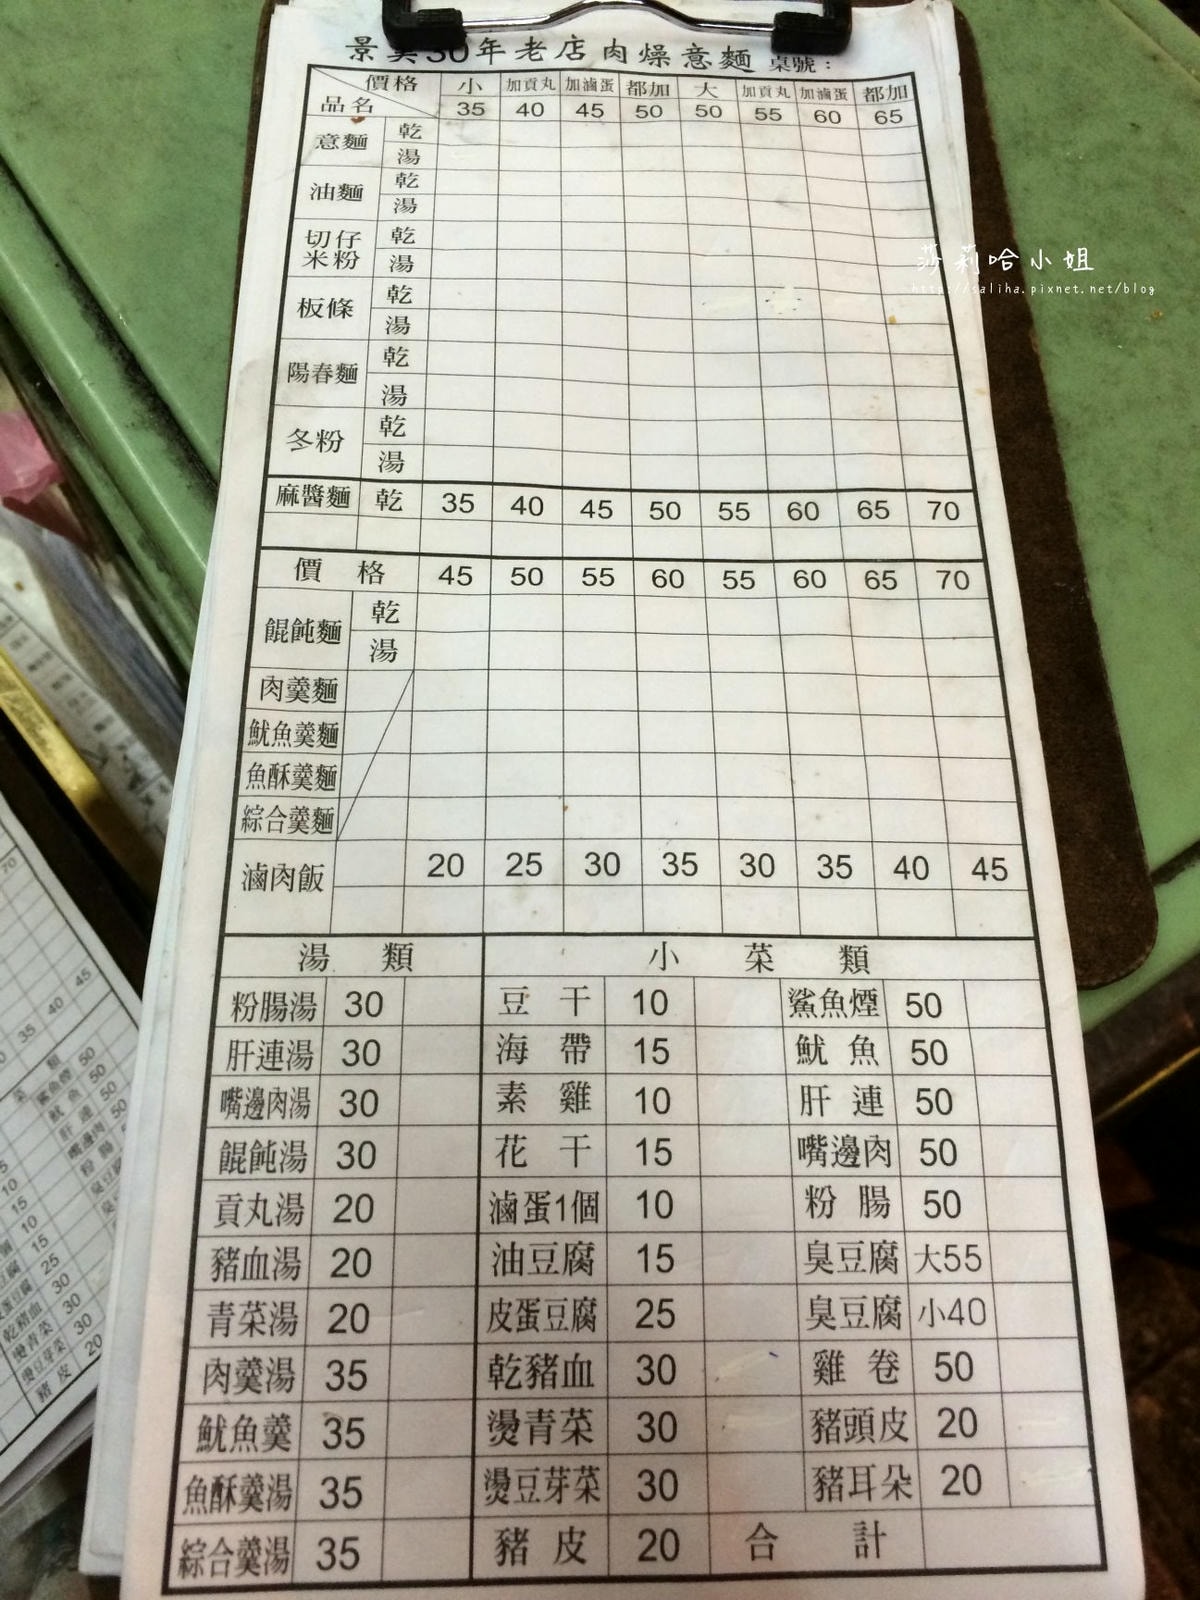 景美30年老店肉燥意麵 桌號：
價格 小 加貢丸 加滷蛋 都加 大 加貢丸 加滷蛋 都加
品名 35 40 45 50 50 55 60 65
意麵 乾
湯
油麵 乾
湯
切仔米粉 乾
湯
板條 乾
湯
陽春麵 乾
湯
冬粉 乾
湯
麻醬麵 乾 35 40 45 50 55 60 65 70
價格 45 50 55 60 55 60 65 70
餛飩麵 乾
湯
肉羹麵
魷魚羹麵
魚酥羹麵
綜合羹麵
滷肉飯 20 25 30 35 30 35 40 45
湯類 小菜類
粉腸湯 30 豆干 10 鯊魚煙 50
肝連湯 30 海帶 15 魷魚 50
嘴邊肉湯 30 素雞 10 肝連 50
餛飩湯 30 花干 15 嘴邊肉 50
貢丸湯 20 滷蛋1個 10 粉腸 50
豬血湯 20 油豆腐 15 臭豆腐 大55
青菜湯 20 皮蛋豆腐 25 臭豆腐 小40
肉羹湯 35 乾豬血 30 雞卷 50
魷魚羹 35 燙青菜 30 豬頭皮 20
魚酥羹湯 35 燙豆芽菜 30 豬耳朵 20
綜合羹湯 35 豬皮 20 合計
莎莉哈小姐
http://saliha.pixnet.net/blog